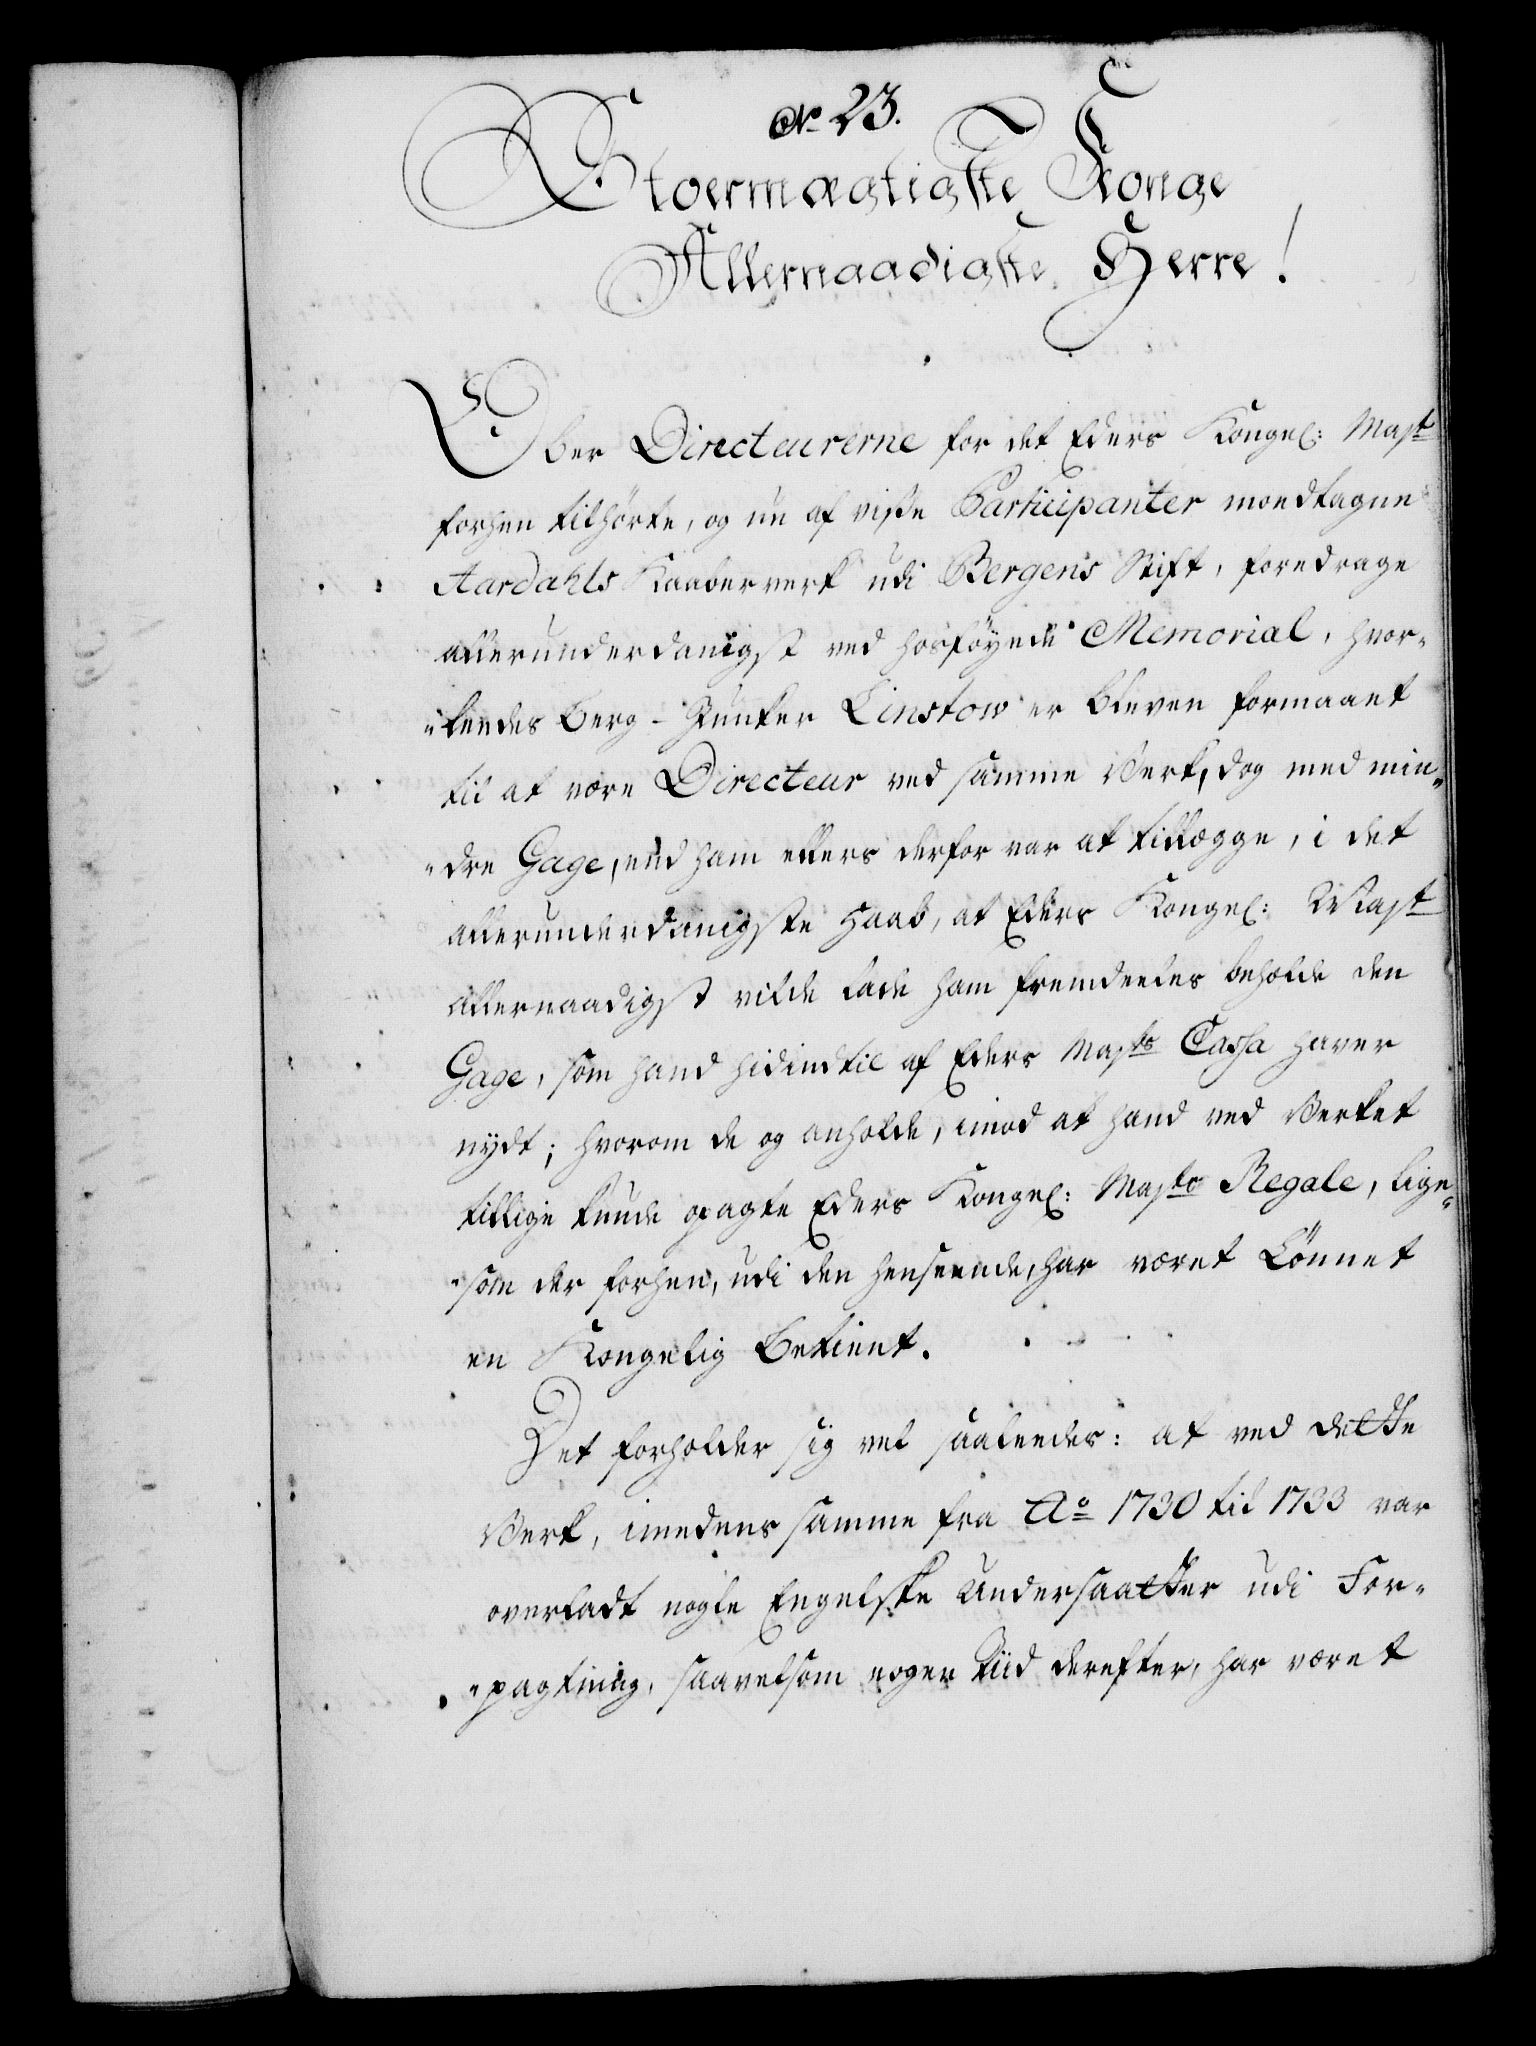 No. 23.
Stoermægtigste Konge
Allernaadigste Herre!
Ober Directeurerne for det Eders Kongel: Mayt
forhen tilhørte, og nu af visse Participanter modtagne
Aardahls Kaaberverk udi Bergens Stift, foredrage
allerunderdanigst ved hosføyede Memorial, hvor-
"ledes Berg-Junker Linstow er bleven formaaet
til at være Directeur ved samme Verk, dog med min-
"dre Gage, end ham ellers derfor var at tillægge, i det
allerunderdanigste Haab, at Eders Kongel: Mayt
allernaadigst vilde lade ham fremdeeles beholde den
Gage, som hand hidindtil af Eders Mayts Cassa haver
nydt; hvorom de og anholde, imod at hand ved Verket
tillige kunde pagte Eders Kongel: Mayts Regale, lige-
"som der forhen, udi den henseende, har været Lønnet
en Kongelig Betient.
Det forholder sig vel saaleedes: at ved dette
Verk, imedens samme fra Ao 1730 til 1733 var
overladt nogle Engelske Undersaatter udi For-
"pagtning, saavelsom nogen Tiid derefter, har været